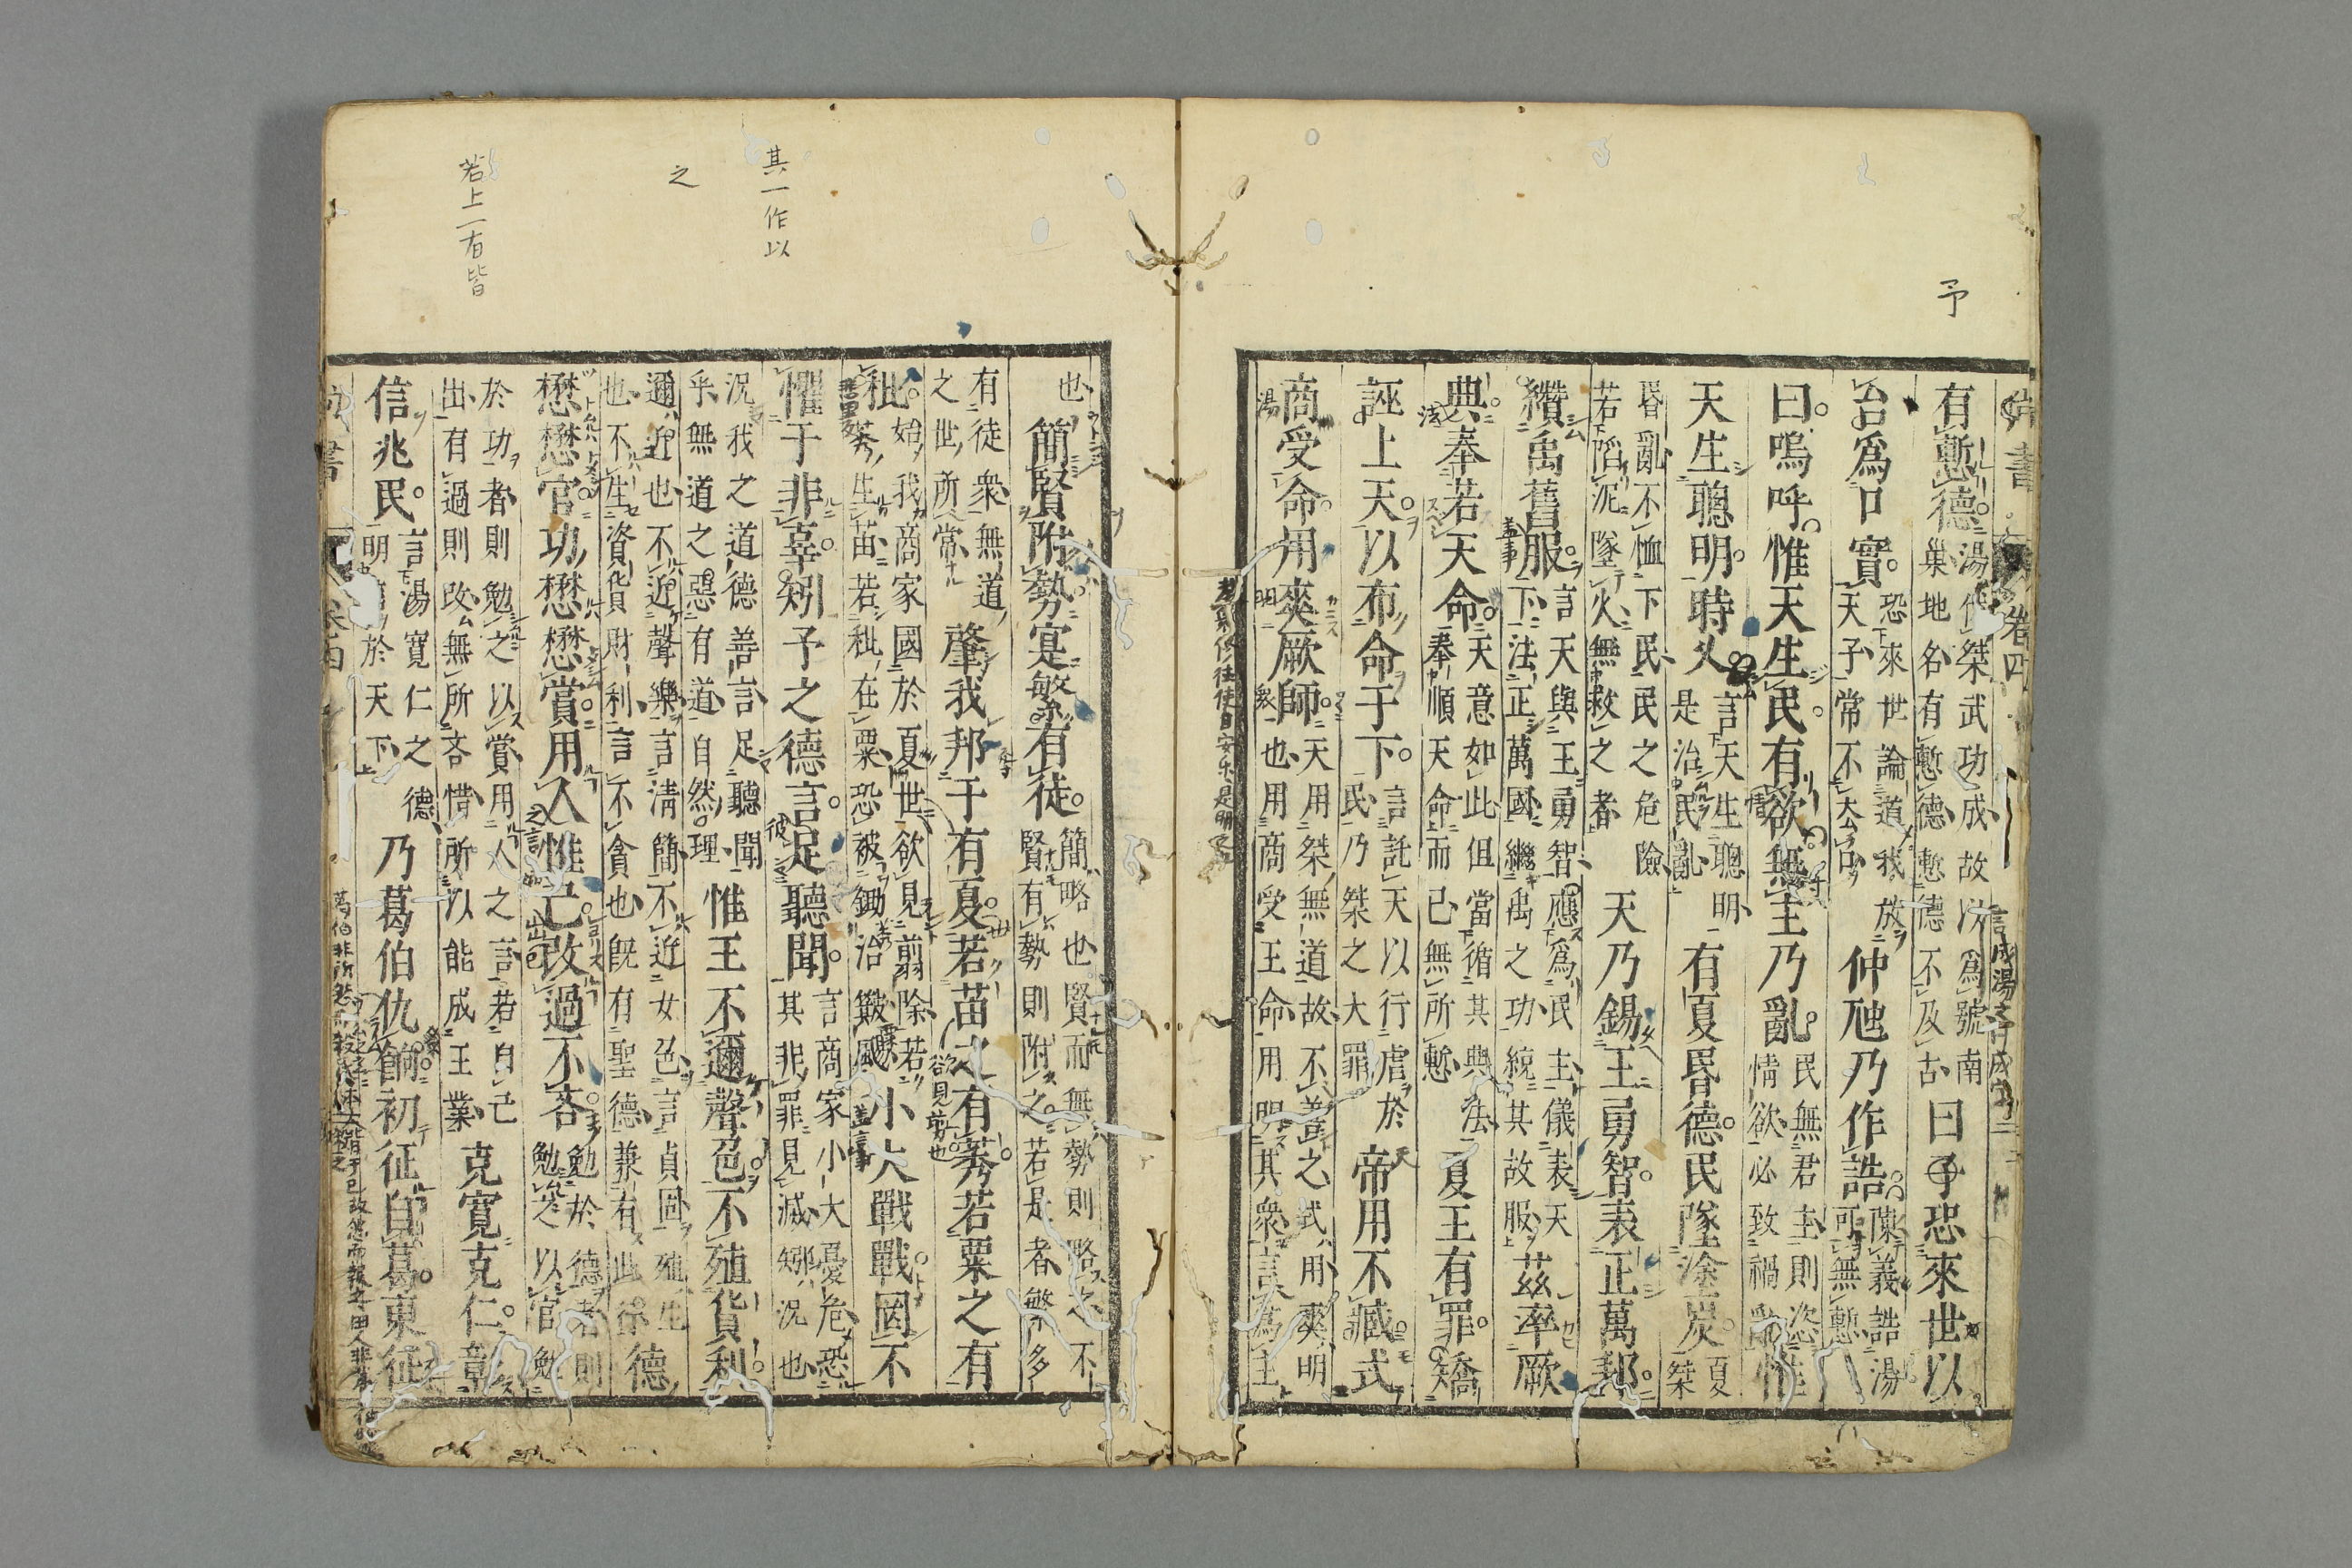 予
尚書 卷四
有慙德湯伐桀武功成故以爲號南巢地名有慙德慙德不及古曰予恐來世以
台爲口實恐來世論道我放天子常不去口仲虺乃作誥陳義誥湯可無慙
曰嗚呼惟天生民有欲無主乃亂民無君主則恣情欲必致禍亂惟
天生聰明時乂言天生聰明是治民亂有夏昬德民墜塗炭夏桀
昬亂不恤下民民之危險若陷泥墜火無救之者天乃錫王勇智表正萬邦
纘禹舊服言天與王勇智應爲民主儀表天下法正萬國繼禹之功統其故服茲率厥
典奉若天命天意如此但當循其典法奉順天命而已無所慙夏王有罪矯
誣上天以布命于下言託天以行虐於民乃桀之大罪帝用不臧式
商受命用爽厥師天用桀無道故不善之式用爽明也用商受王命用明其衆言爲主
其一作以
之
若上一有皆
也簡賢附勢寔繁有徒簡略也賢而無勢則略之不賢有勢則附之若是者繁多
有徒衆無道之世所常肇我邦于有夏若苗之有莠若粟之有
秕始我商家國於夏世欲見翦除若莠生苗若秕在粟恐被鋤治簸颺小大戰戰罔不
懼于非辜矧予之德言足聽聞言商家小大憂危恐其非罪見滅矧況也
況我之道德善言足聽聞乎無道之惡有道自然理惟王不邇聲色不殖貨利
邇近也不近聲樂言淸簡不近女色言貞固殖生也不生資貨財利言不貪也旣有聖德兼有此行德
懋懋官功懋懋賞用人惟己改過不吝勉於德者則勉之以官勉
於功者則勉之以賞用人之言若自己出有過則改無所吝惜所以能成王業克寬克仁章
信兆民言湯寬仁之德明信於天下乃葛伯仇餉初征自葛東征